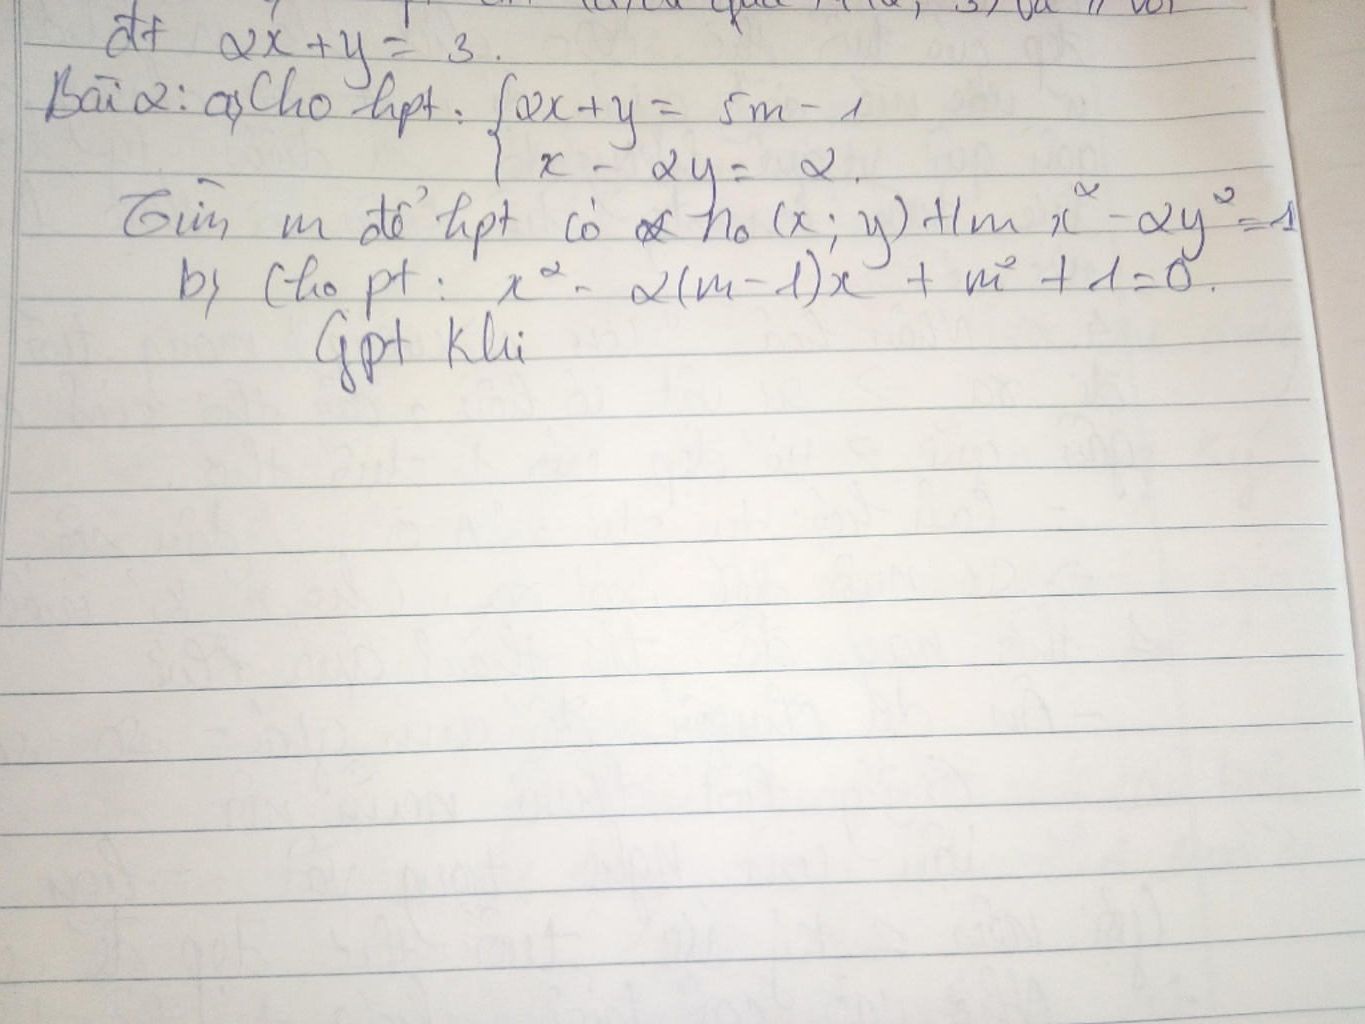 qua
đt 2x + y = 3.
Bài 2: a, Cho hpt: { 2x + y = 5m - 1
x - 2y = 2.
Tìm m để hpt có no (x; y) t/m x² - 2y² = 1
b, Cho pt: x² - 2(m - 1)x + m² + 1 = 0.
Gpt khi